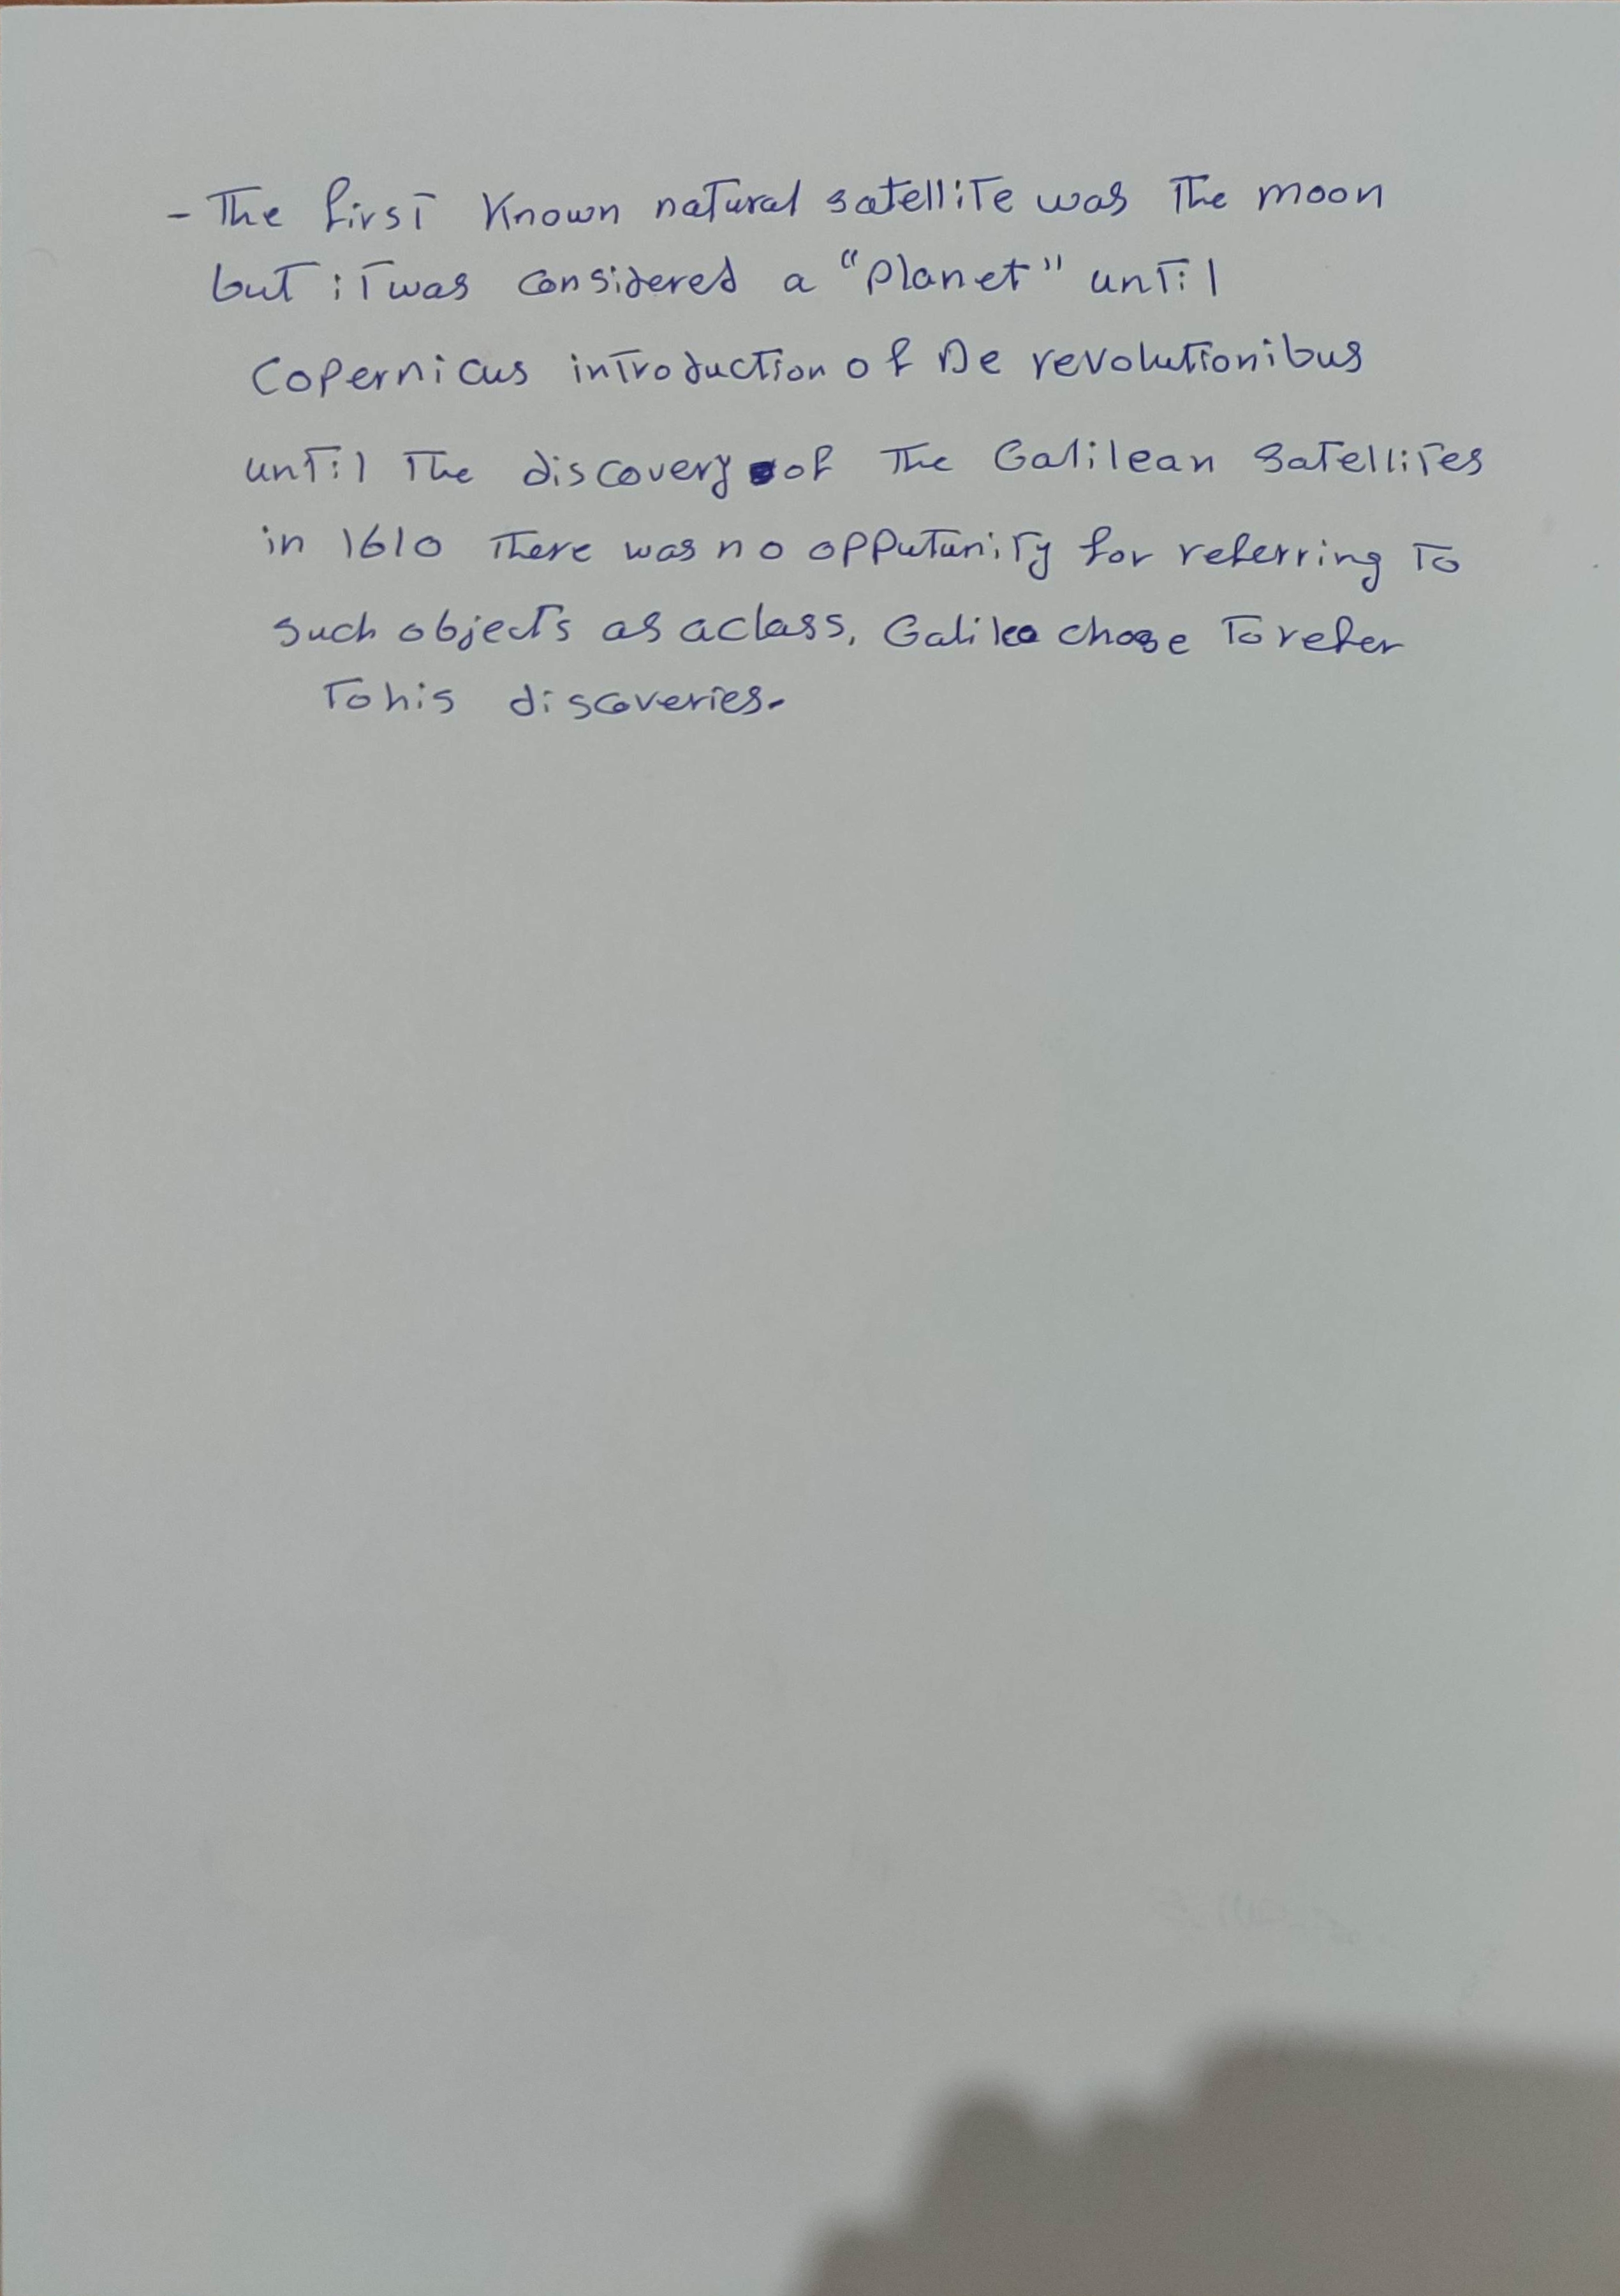 - The first Known natural satellite was The moon
but it was considered a "planet" until
Copernicus introduction of De revolutionibus
until The discovery of The Galilean Satellites
in 1610 There was no opputunity for referring To
such objects as a class, Galileo chose To refer
To his discoveries.